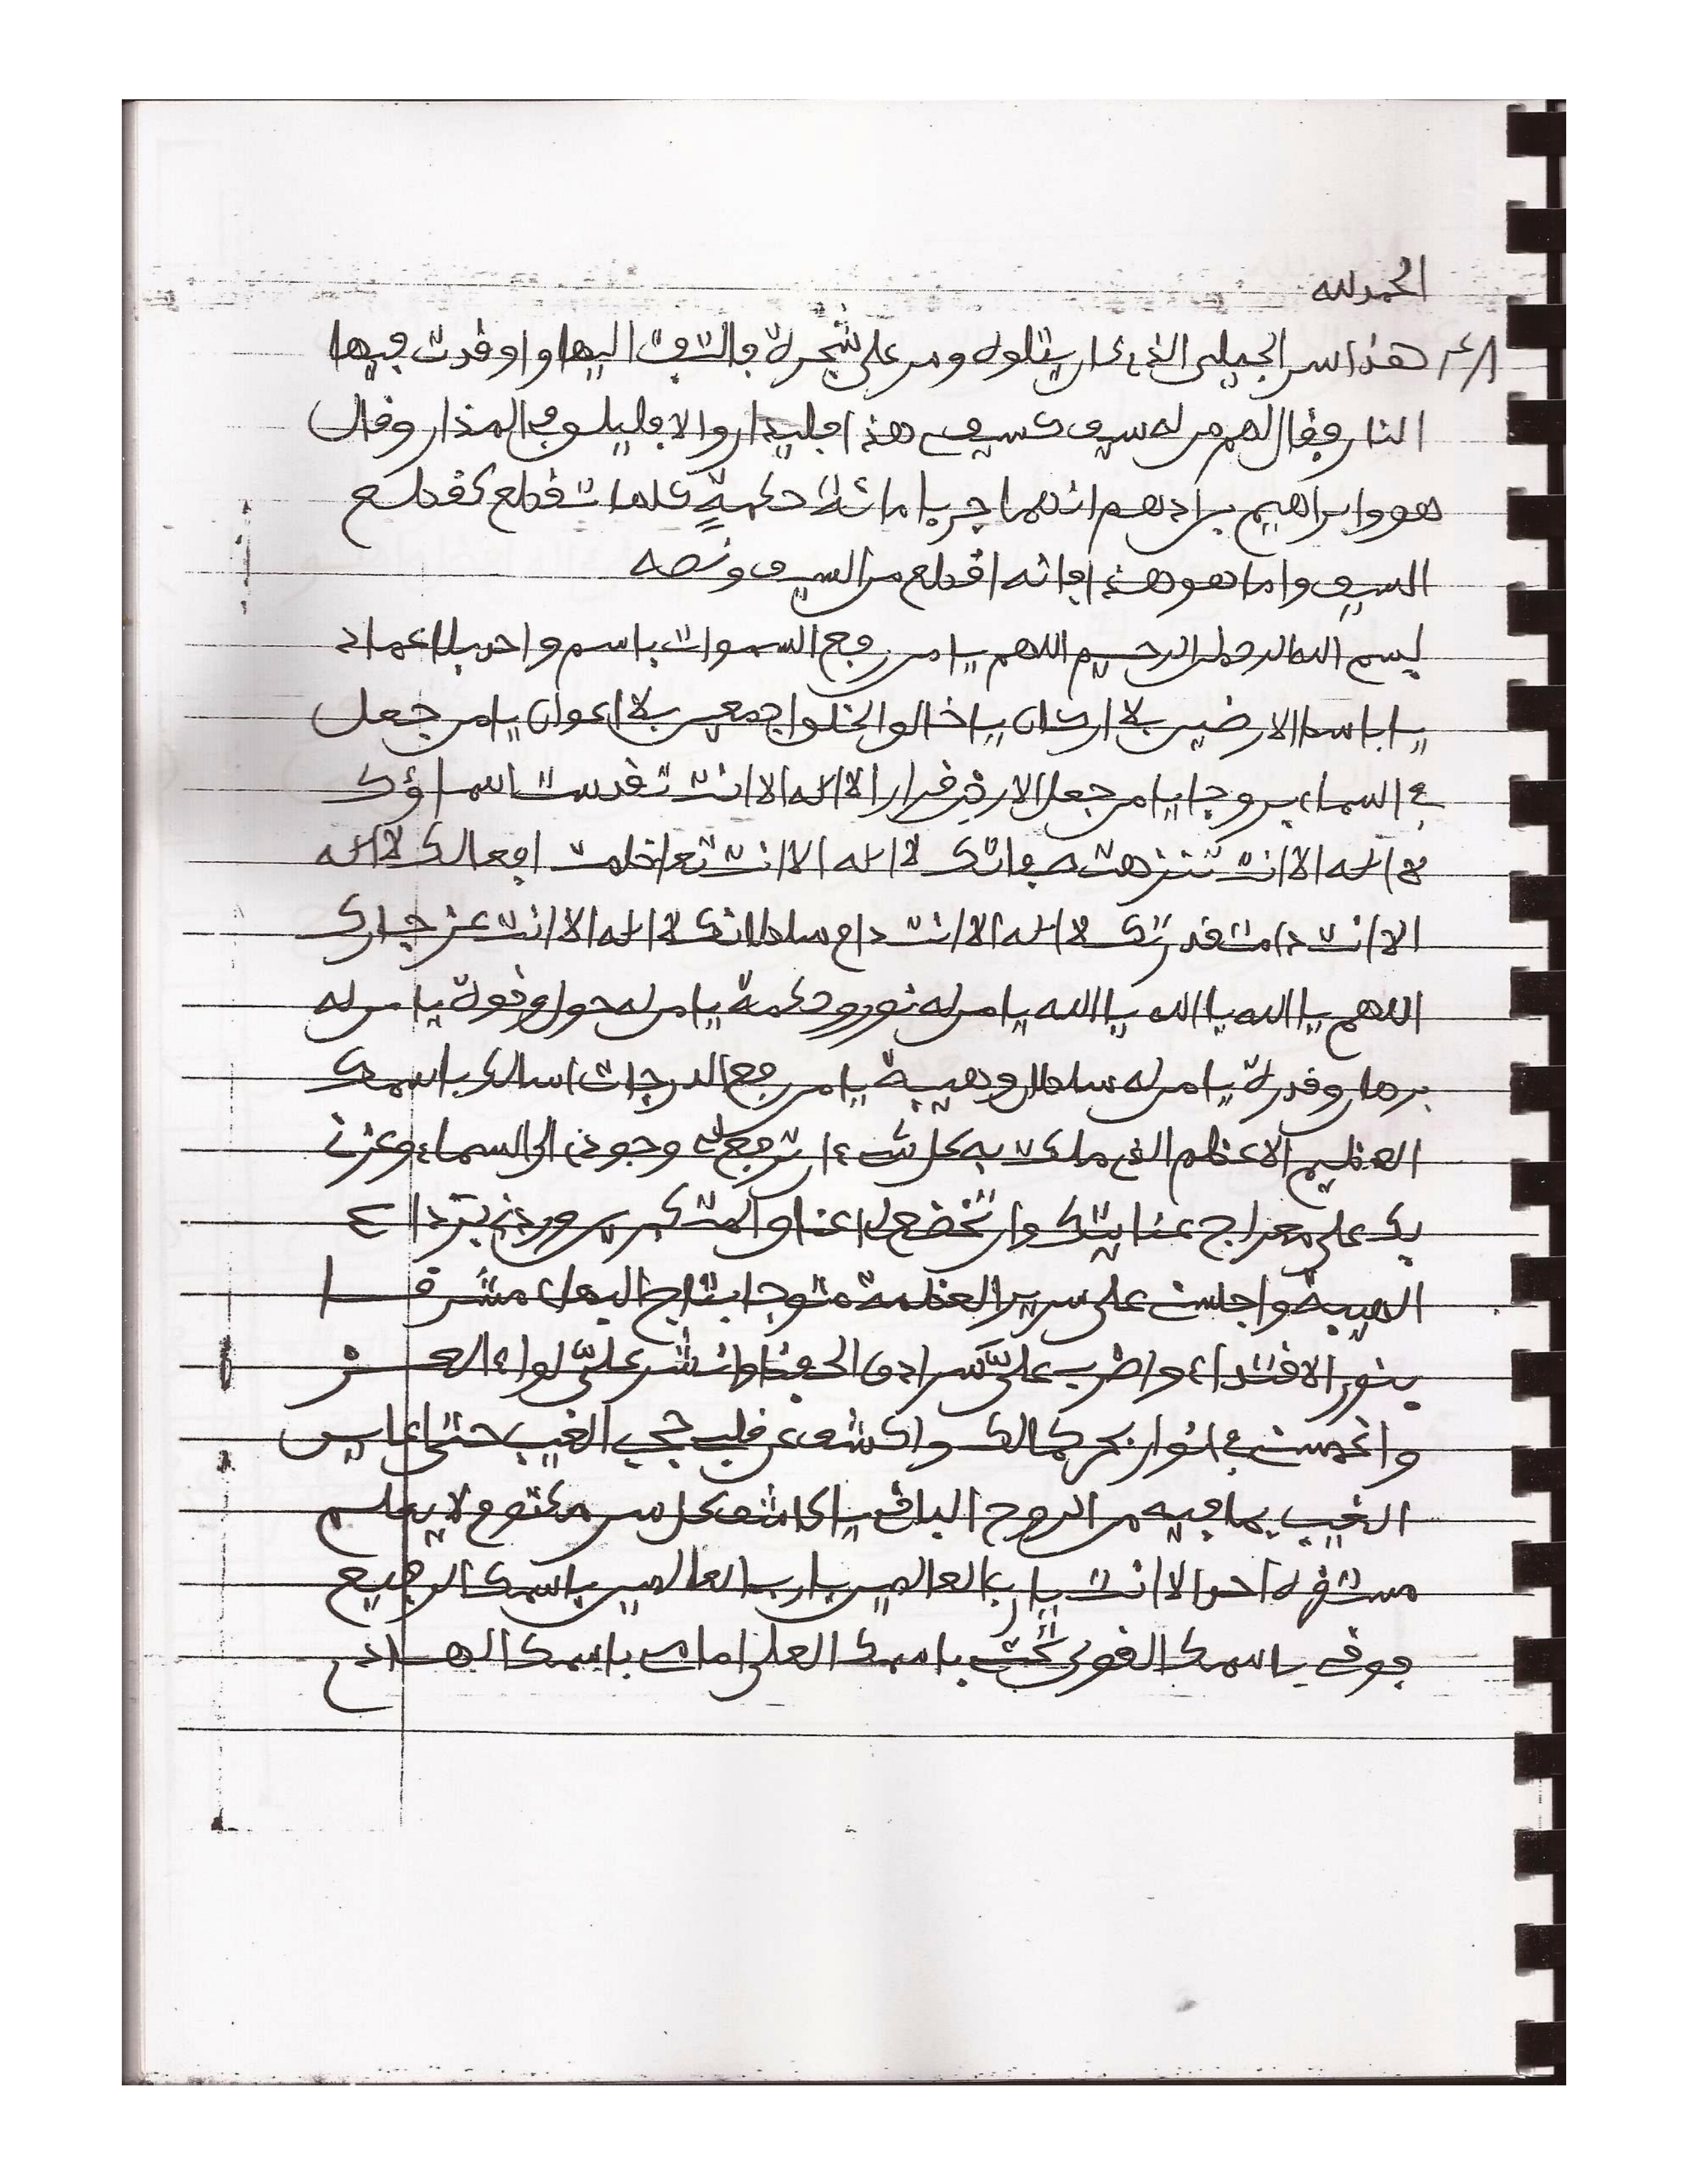 الحمد لله
هذا سر الجيلي الذي كان يتلوه ومر على شجرة فالتفت اليها واوقدت فيها
النار وقال لهم من له سيف كسيف هذا والا فلا وقال
هو وابراهيم بن ادهم انهما جربا مائة حكمة كلها تقطع كقطع
السيف واما هو هذا فانه اقطع من السيف ونصه
بسم الله الرحمن الرحيم اللهم يا من رفع السموات باسم واحد بلا اعماد
يا باسط الارضين بلا اركان يا خالق الخلق اجمعين بلا اعوان يا من جعل
في السماء بروجا يا من جعل الارض قرارا لا اله الا انت تقدست اسماؤك
لا اله الا انت تنزهت صفاتك لا اله الا انت تعاظمت افعالك لا اله
الا انت دامت قدرتك لا اله الا انت دام سلطانك لا اله الا انت عز جارك
اللهم يا الله يا الله يا الله يا من له نور وحكمة يا من له حول وقوة يا من له
برهان وقدرة يا من له سلطان وهيبة يا من رفع الدرجات اسالك باسمك
العظيم الاعظم الذي ملكت به كل شيء ان ترفع وجودي الى السماء وعزني
بك على معراج عنايتك وان تخضع لي اعناق المتكبرين وردني برداء
الهيبة واجلسني على سرير العظمة متوجا بتاج البهاء مشرقا
بنور الاقتداء واضرب عليّ سرادق الحفظ وانشر عليّ لواء العز
واغمسني في انوار بحر كمالك واكشف عن قلبي حجب الغيب حتى اعاين
الغيب بما فيه من الروح الباقي يا كاشف كل سر مكتوم لا يعلم
مستقره احد الا انت يا رب العالمين يا رب العالمين باسمك الرفيع
فوقي باسمك القوي تحتي باسمك العلي امامي باسمك الهادي